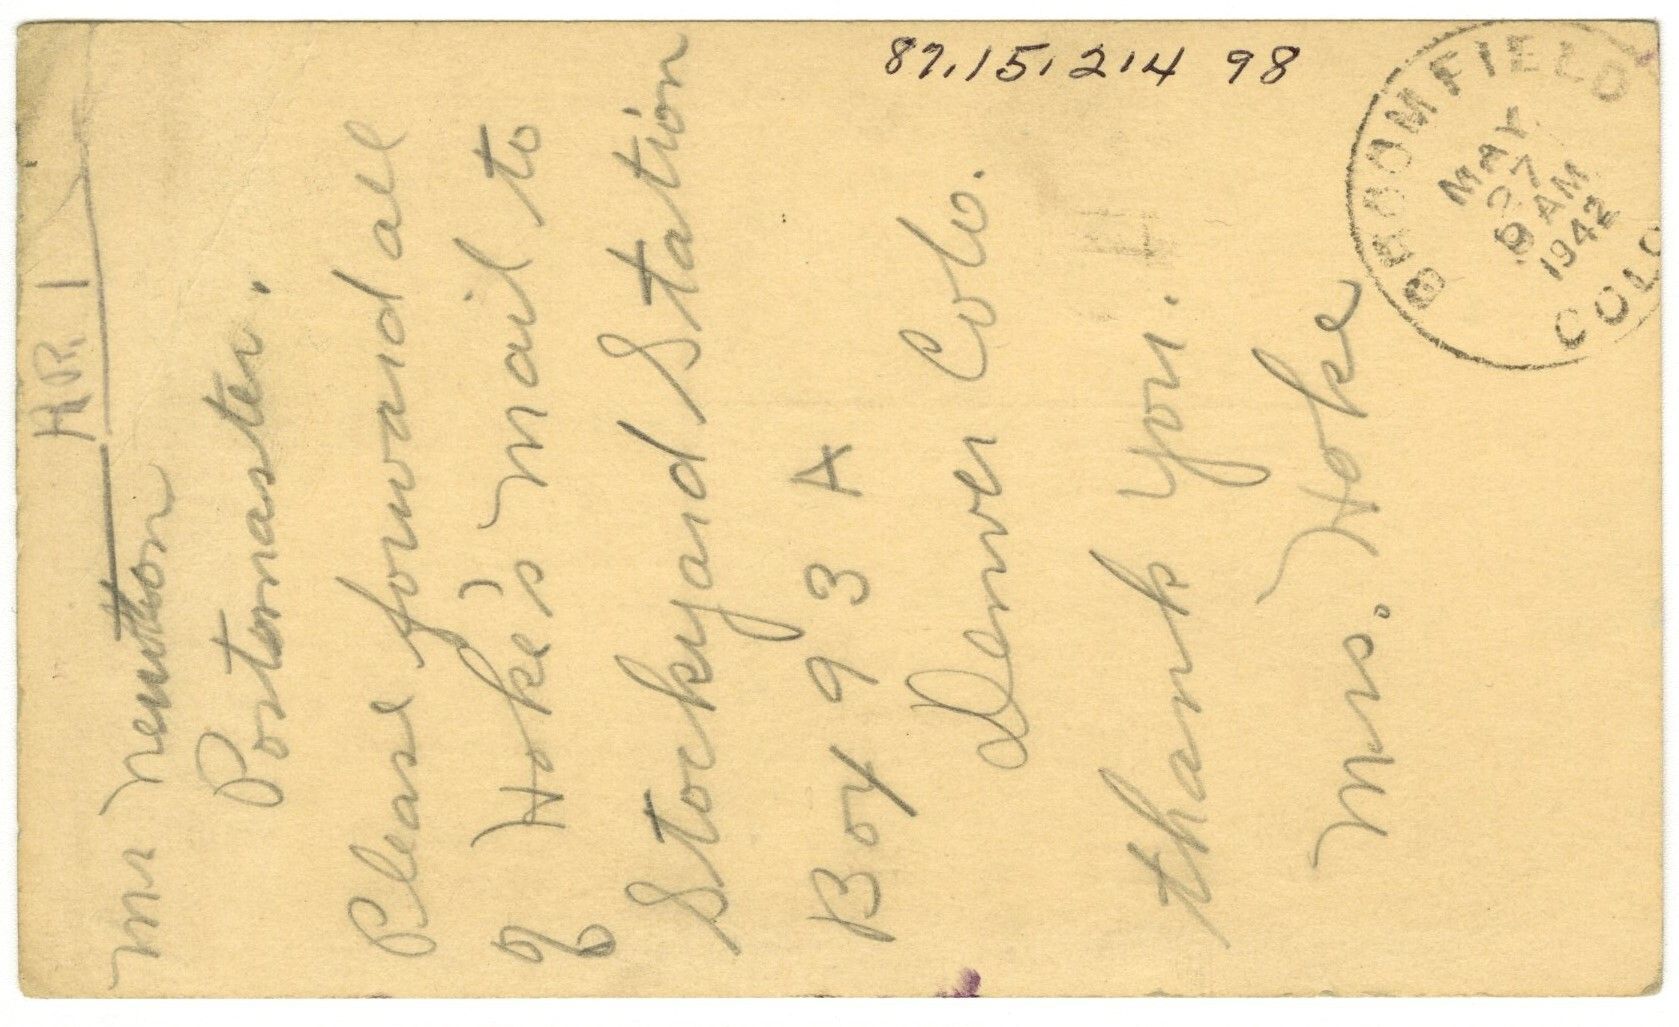 87.15.214 98
BROOMFIELD
MAY
27
8 AM
1942
COLO
APR. 1
Mr Newton
Postmaster.
Please forward all
of Hoke's mail to
Stockyard Station
Box 93 A
Denver Colo.
thank you.
Mrs. Hoke